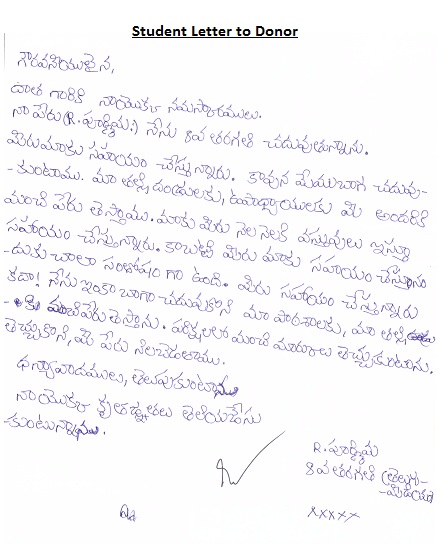 Student Letter to Donor
గౌరవనీయులైన,
దాత గారికి నాయొక్క నమస్కారములు.
నా పేరు (R. పూర్ణిమ.) నేను 8వ తరగతి చదువుతున్నాను.
మీరుమాకు సహాయం చేస్తున్నారు. కావున మేముబాగ చదువు-
-కుంటాము. మా తల్లి దండ్రులకు, ఉపాధ్యాయులకు మీ అందరికి
మంచి పేరు తెస్తాము. మాకు మీరు నెల నెలకి వస్తువులు ఇస్తూ
సహాయం చేస్తున్నారు. కాబట్టి మీరు మాకు సహాయం చేస్తునం
-దుకు చాలా సంతోషం గా ఉంది. మీరు సహాయం చేస్తున్నారు
కదా! నేను ఇంకా బాగా చదువుకొని మా పాఠశాలకు, మా తల్లి
-కి మంచిపేరు తెస్తాను. పరీక్షలలో మంచి మార్కులు తెచ్చుకుంటాను.
తెచ్చుకొని, మీ పేరు నిలబెడతాము.
ధన్యావాదములు, తెలుపుకుంటాము
నాయొక్క కృతజ్ఞతలు తెలియచేసు
-కుంటున్నాను.
R. పూర్ణిమ
8వ తరగతి (తెలుగు)-
-మీడియం
xxxxx